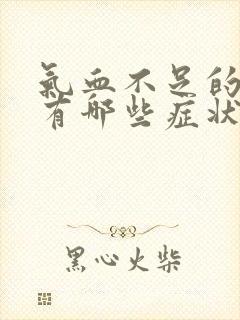 氣血不足的
有哪些症状
黑心火柴